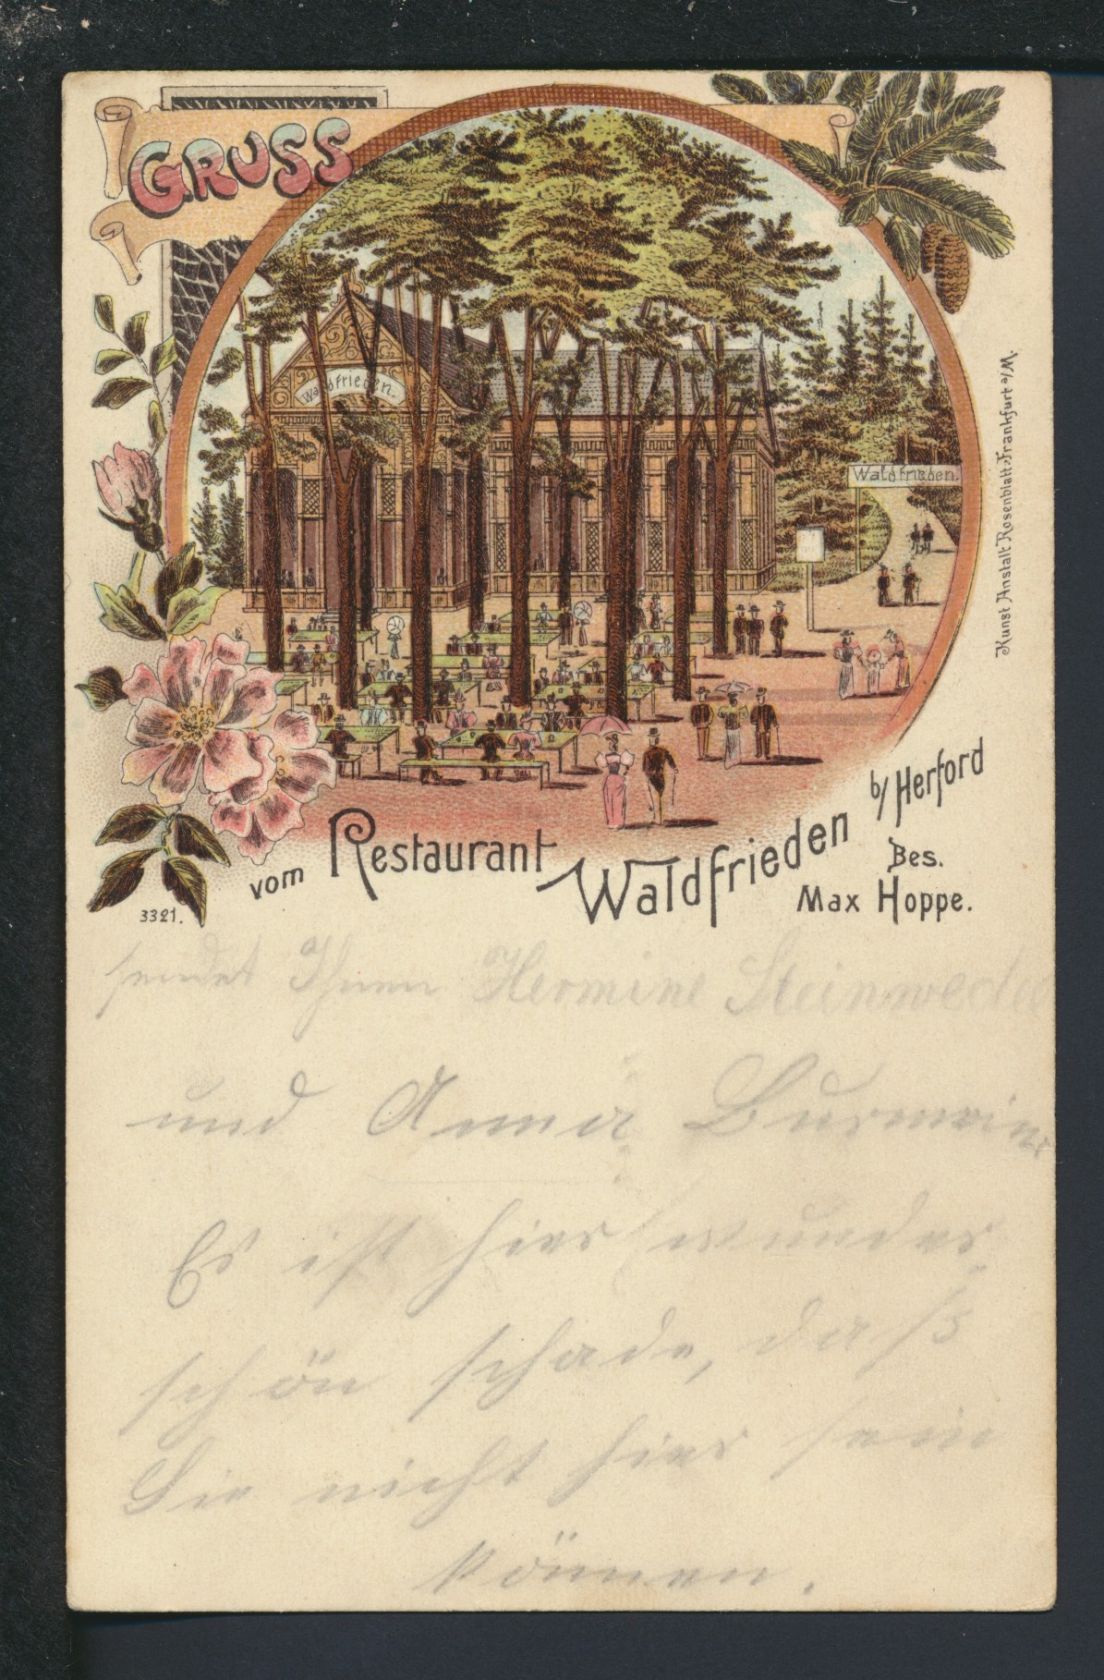 GRUSS
Waldfrieden.
Waldfrieden.
Kunst Anstalt Rosenblatt Frankfurt a/M.
vom Restaurant Waldfrieden b/ Herford
Bes.
Max Hoppe.
3321.
sendet Ihnen Hermine
und Anna
Es ist hier wunder
schön schade, daß
Sie nicht hier sein
können.